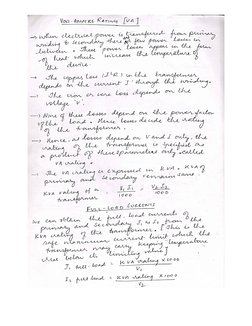 VOLT-AMPERE RATING [VA]
→ When electrical power is transferred from primary
winding to secondary there are few power losses in
between. These power losses appear in the form
of heat which increase the temperature of
the device.
→ The copper loss (I²R) in the transformer
depends on the current I through the winding.
→ The iron or core loss depends on the
voltage V.
→ None of these losses depend on the power factor
of the load. Hence losses decide the rating
of the transformer.
→ Hence, as losses depend on V and I only, the
rating of the transformer is specified as a
product of these parameters only called
VA rating.
→ The VA rating is expressed as KVA. KVA of
primary and secondary remains same
KVA rating of a transformer = V₁ I₁ / 1000 = V₂ I₂ / 1000
FULL-LOAD CURRENTS
We can obtain the full-load currents of
primary and secondary I₁, I₂ from the
KVA rating of the transformer. [This is the
safe maximum current limit which the
transformer may carry keeping temperature
rise below its limiting value]
I₁ full-load = KVA rating × 1000 / V₁
I₂ full load = KVA rating × 1000 / V₂